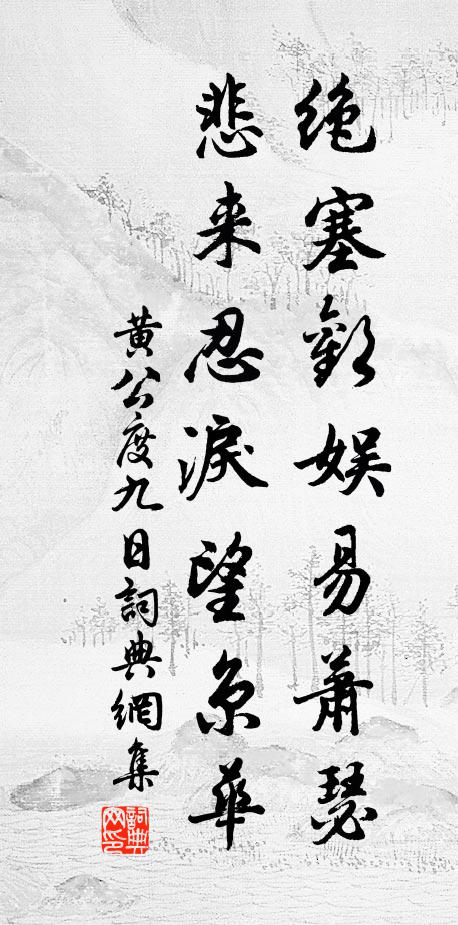 绝塞歡娱易萧瑟
悲来忍淚望京華
黃公度九日詞典網集
詞典
网印